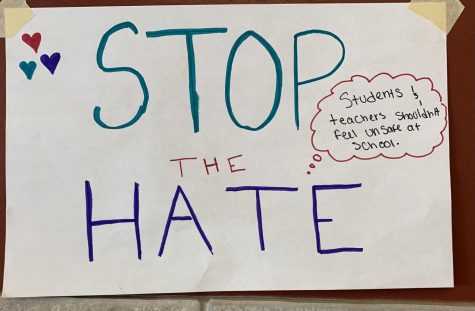 STOP
THE
HATE
Students &
teachers shouldn't
feel unsafe at
school.